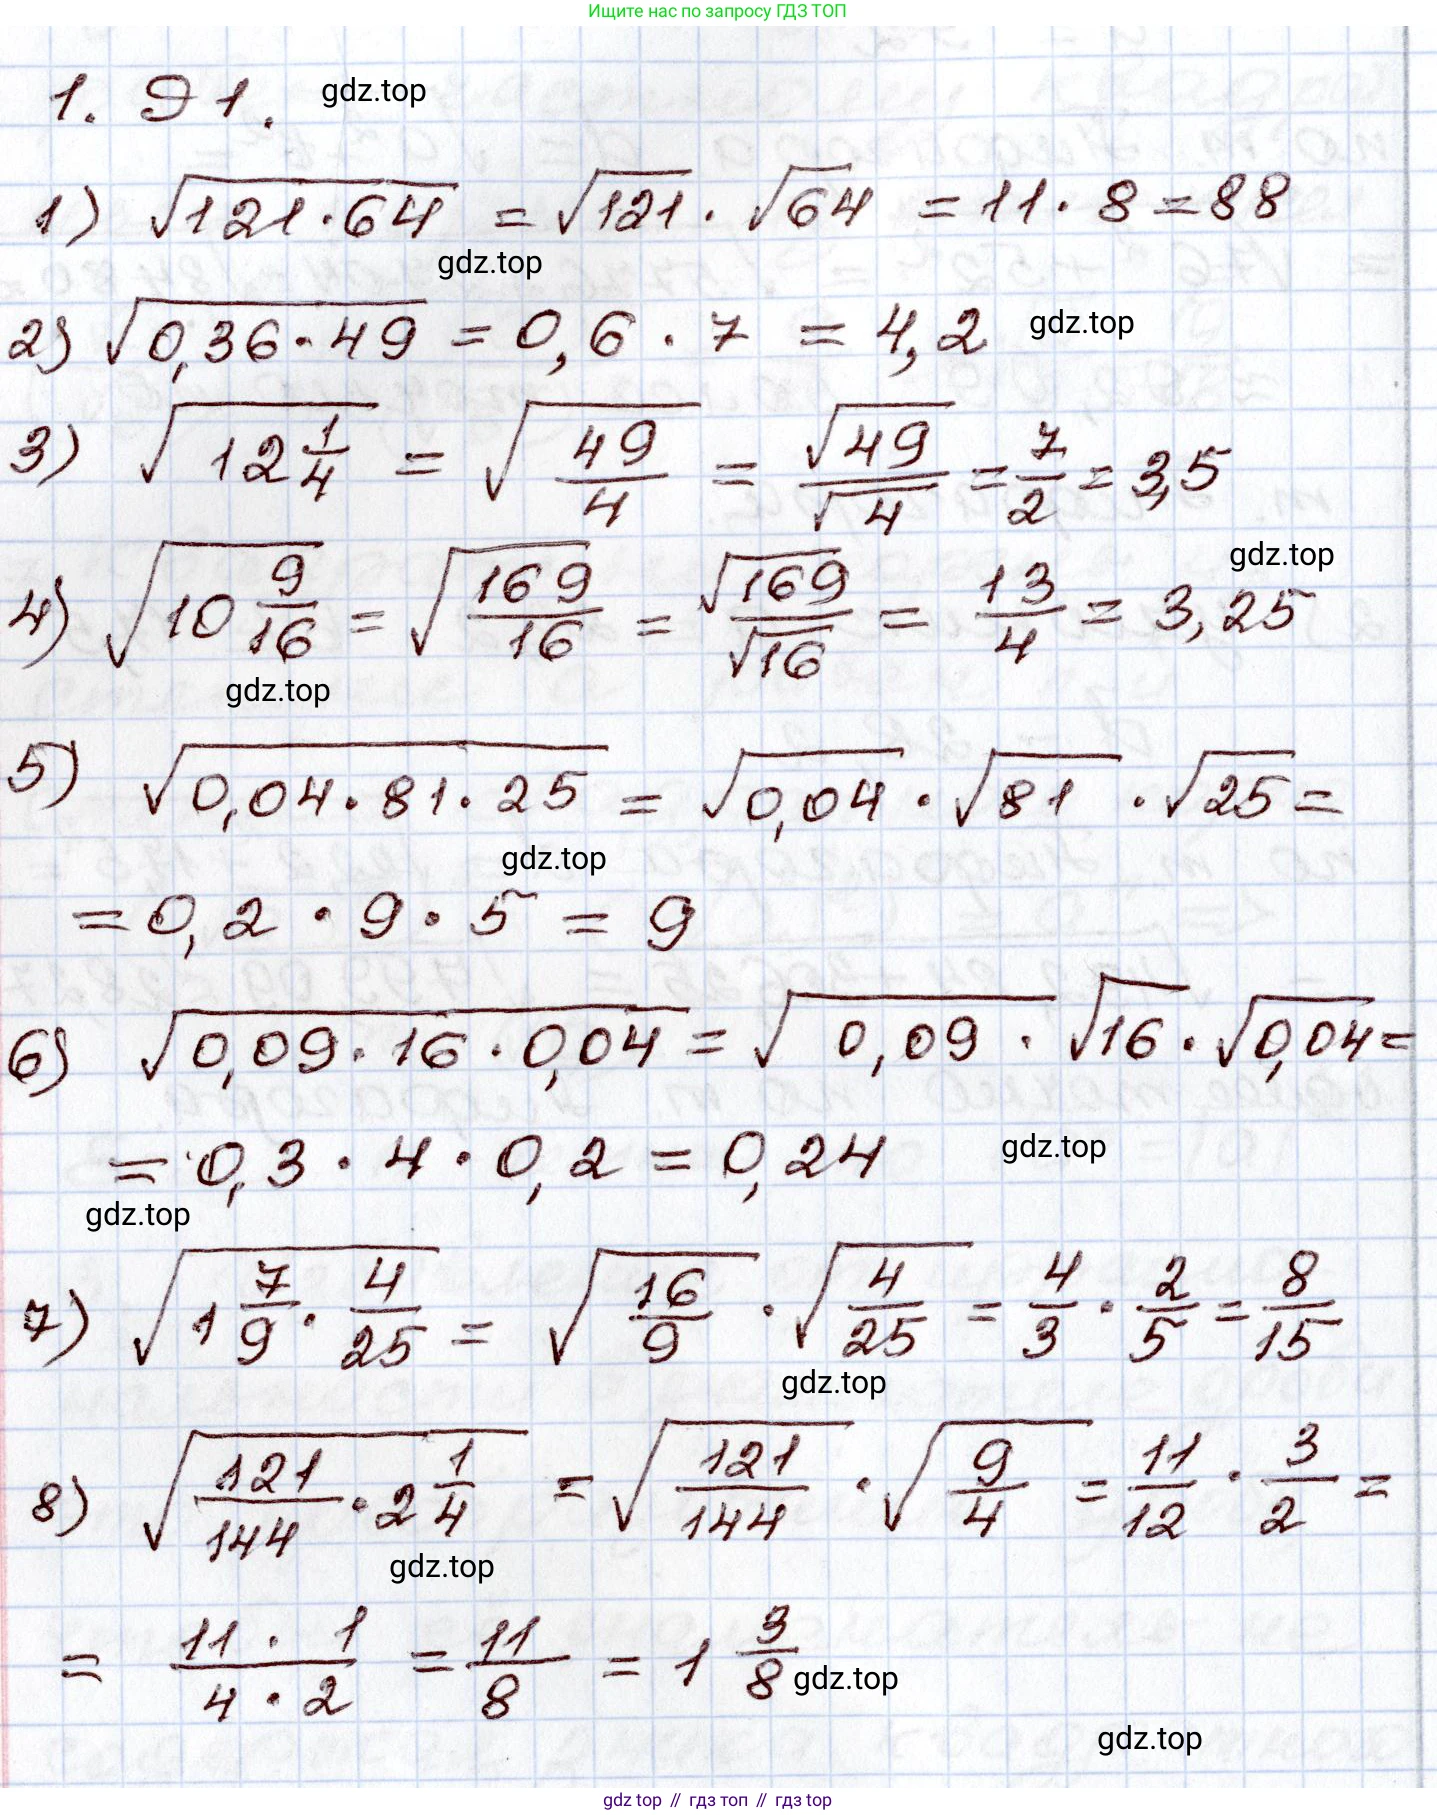 Ищите нас по запросу ГДЗ ТОП
1.91. gdz.top
1) √(121·64) = √121 · √64 = 11 · 8 = 88
gdz.top
2) √(0,36·49) = 0,6 · 7 = 4,2 gdz.top
3) √(12 1/4) = √(49/4) = √49/√4 = 7/2 = 3,5
gdz.top
4) √(10 9/16) = √(169/16) = √169/√16 = 13/4 = 3,25
gdz.top
5) √(0,04·81·25) = √0,04 · √81 · √25 =
gdz.top
= 0,2 · 9 · 5 = 9
6) √(0,09·16·0,04) = √0,09 · √16 · √0,04 =
= 0,3 · 4 · 0,2 = 0,24 gdz.top
gdz.top
7) √(1 7/9 · 4/25) = √(16/9) · √(4/25) = 4/3 · 2/5 = 8/15
gdz.top
8) √(121/144 · 2 1/4) = √(121/144) · √(9/4) = 11/12 · 3/2 =
gdz.top
= (11·1)/(4·2) = 11/8 = 1 3/8 gdz.top
gdz.top
gdz top // гдз топ // гдз top